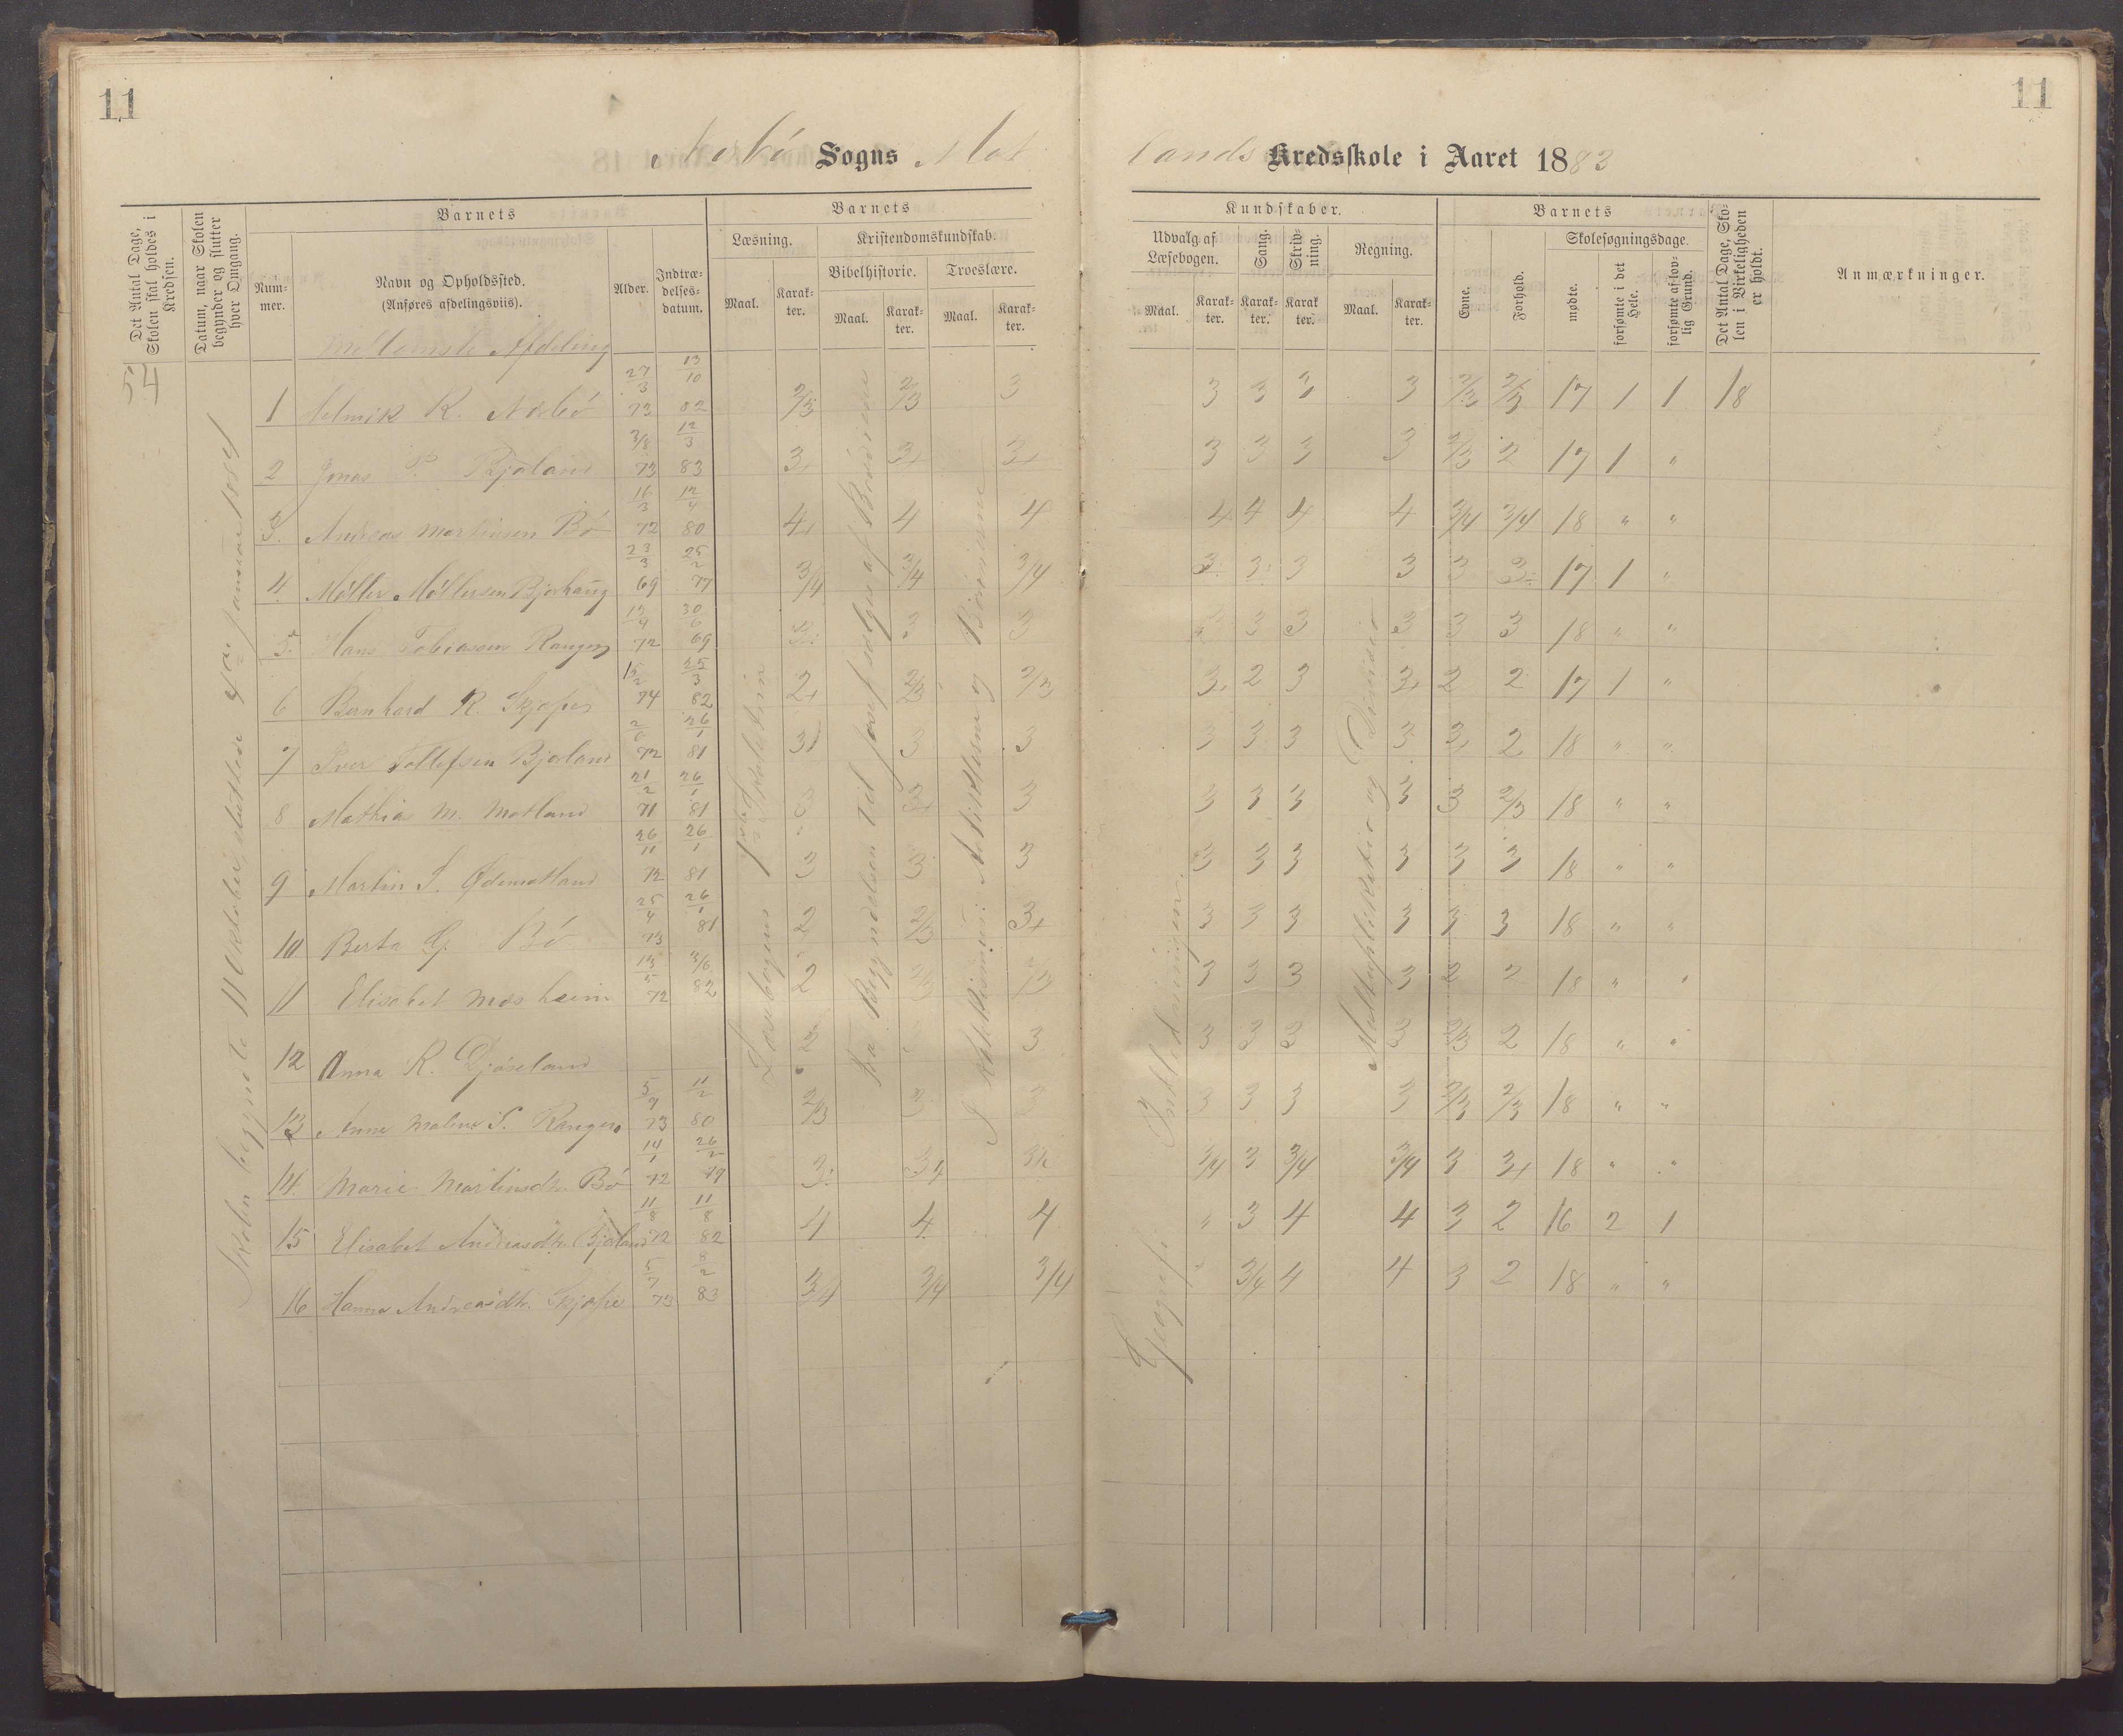 11
11
Sogns
lands Kredsskole i Aaret 1883
Det Antal Dage, Skolen skal holdes i Kredsen.
Datum, naar Skolen begynder og slutter hver Omgang.
Barnets
Nummer.
Navn og Opholdssted.
(Anføres afdelingsviis).
Alder.
Indtrædelsesdatum.
Barnets
Læsning.
Maal.
Karakter.
Kristendomskundskab.
Bibelhistorie.
Maal.
Karakter.
Troeslære.
Maal.
Karakter.
Kundskaber.
Udvalg af Læsebogen.
Maal.
Karakter.
Sang.
Karakter.
Skrivning.
Karakter.
Regning.
Maal.
Karakter.
Barnets
Evne.
Forhold.
Skolesøgningsdage.
mødte.
forsømte i det Hele.
forsømte af lovlig Grund.
Det Antal Dage, Skolen i Virkeligheden er holdt.
Anmærkninger.
Mellemste Afdeling
54
Skolen begyndte 11 Oktober, sluttede 4de januar 1884
Læsebogens
Fra Begyndelsen til josef sælges af Brødrene
I Katekismus: Artiklerne og Bønnerne
Geografi Indledningen.
Multiplikation og Division
1 R. 27/3 73 13/10 82 2/3 2/3 3 3 3 3 3 2/3 2/3 17 1 1 18
2 Jonas P. Bjorland 3/8 73 12/3 83 3+ 3+ 3+ 3 3 3 3 2/3 2 17 1 "
3. Andreas Martinsen Bö 16/3 72 12/4 80 4+ 4 4 4 4 4 4 3/4 3/4 18 " "
4 Möller Möllersen Bjorhaug 23/3 69 25/2 77 3/4 3/4 3/4 3 3 3 3 3 3 17 1 "
5. Hans Tobiassen Rangen 72 30/6 69 3 3 3 3 3 3 3 3 3 18 " "
6 Bernhard R. Skjæpes 15/2 74 25/3 82 2+ 2/3 2/3 3+ 2 3 3+ 2 2 17 1 "
7 Iver Tollefsen Bjorland 72 26/1 81 3+ 3 3 3 3 3 3 3+ 2 18 " "
8 Mathias M. Motland 21/2 71 26/1 81 3 3+ 3 3 3 3 3 3 2/3 18 " "
9 Martin S. Ødemotland 26/11 72 26/1 81 3 3 3 3 3 3 3 3 3 18 " "
10 Berta G. Bö 25/4 73 26/1 81 2 2/3 3+ 3 3 3 3 3 3 18 " "
11 Elisabet Mosheim 13/5 72 3/6 82 2 2/3 2/3 3 3 3 3 2 2 18 " "
12 Anna R. Djöseland 3 3 3 3 3 3 2/3 2 18 " "
13 Anne Malene S. Rangen 5/9 73 11/2 80 2/3 3 3 3 3 3 3 2/3 2/3 18 " "
14. Marie Martinsdtr. Bö 14/1 72 26/2 79 3 3+ 3/4 3 3/4 3/4 3 3+ 18 " "
15 Elisabet Andreasdtr. Bjorland 11/8 72 11/8 82 4 4 4 " 3 4 4 3 2 16 2 1
16 Hanna Andreasdtr. Skjæpes 5/7 73 8/2 83 3/4 3/4 3/4 " 3/4 4 4 3 2 18 " "